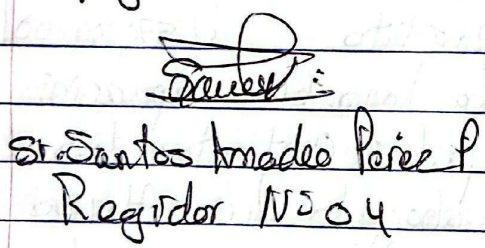 Sr. Santos Amadeo Perez P
Regidor Nº 04